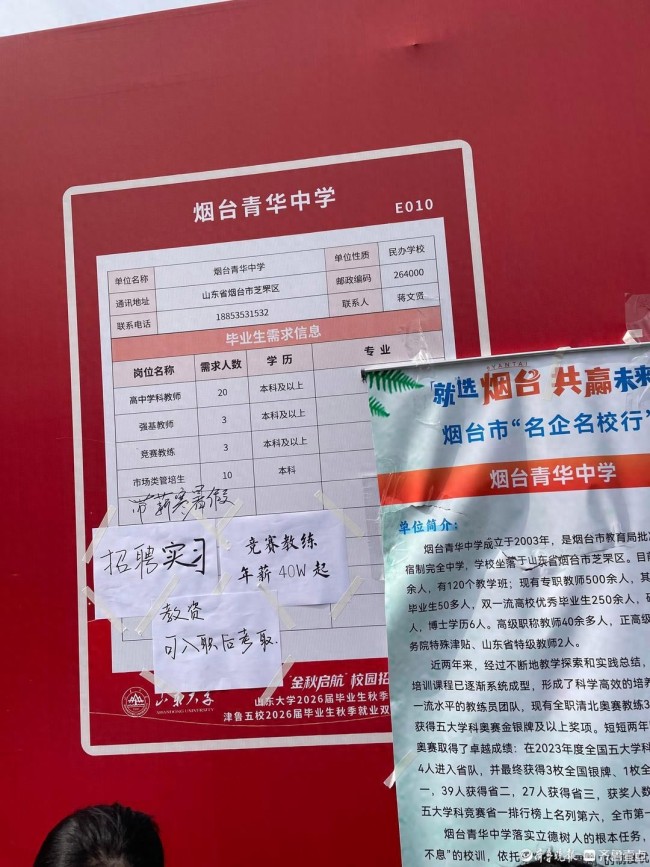 烟台青华中学
E010
单位名称 烟台青华中学 单位性质 民办学校
通讯地址 山东省烟台市芝罘区 邮政编码 264000
联系电话 18853531532 联系人 蒋文贤
毕业生需求信息
岗位名称 需求人数 学历 专业
高中学科教师 20 本科及以上
强基教师 3 本科及以上
竞赛教练 3 本科及以上
市场类管培生 10 本科
带薪寒暑假
招聘实习
竞赛教练
年薪40W起
教资
可入职后考取.
"金秋启航"校园招
山东大学
SHANDONG UNIVERSITY
山东大学2026届毕业生秋季
津鲁五校2026届毕业生秋季就业双
YANTAI
就选烟台 共赢未来
烟台市"名企名校行"
烟台青华中学
单位简介:
烟台青华中学成立于2003年,是烟台市教育局批
宿制完全中学,学校坐落于山东省烟台市芝罘区。目前
余人,有120个教学班;现有专职教师500余人,其
毕业生50多人,双一流高校优秀毕业生250余人,硕
人,博士学历6人。高级职称教师40余多人,正高级
务院特殊津贴、山东省特级教师2人。
近两年来,经过不断地教学探索和实践总结,
培训课程已逐渐系统成型,形成了科学高效的培养
一流水平的教练员团队,现有全职清北奥赛教练3
获得五大学科奥赛金银牌及以上奖项。短短两年
奥赛取得了卓越成绩:在2023年度全国五大学科
4人进入省队,并最终获得3枚全国银牌、1枚全
一,39人获得省二,27人获得省三,获奖人数
五大学科竞赛省一排行榜上名列第六,全市第一
烟台青华中学落实立德树人的根本任务,
不息"的校训,依托
齐鲁壹点